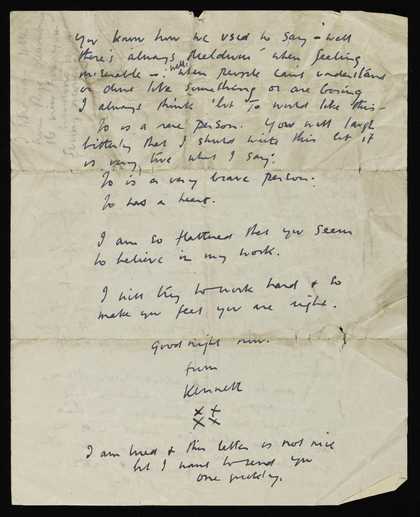 You know how we used to say – 'well
there's always Meldrum' when feeling
miserable – well when people can't understand
or don't like something or are boring
I always think 'but Jo would like this –
Jo is a rare person. You will laugh
bitterly that I should write this but it
is very true what I say.
Jo is a very brave person.
Jo has a heart.
I am so flattered that you seem
to believe in my work.
I will try to work hard & so
make you feel you are right.
Good night now.
from
Kenneth
x x
x x
I am tired & this letter is not nice
but I want to send you
one quickly.